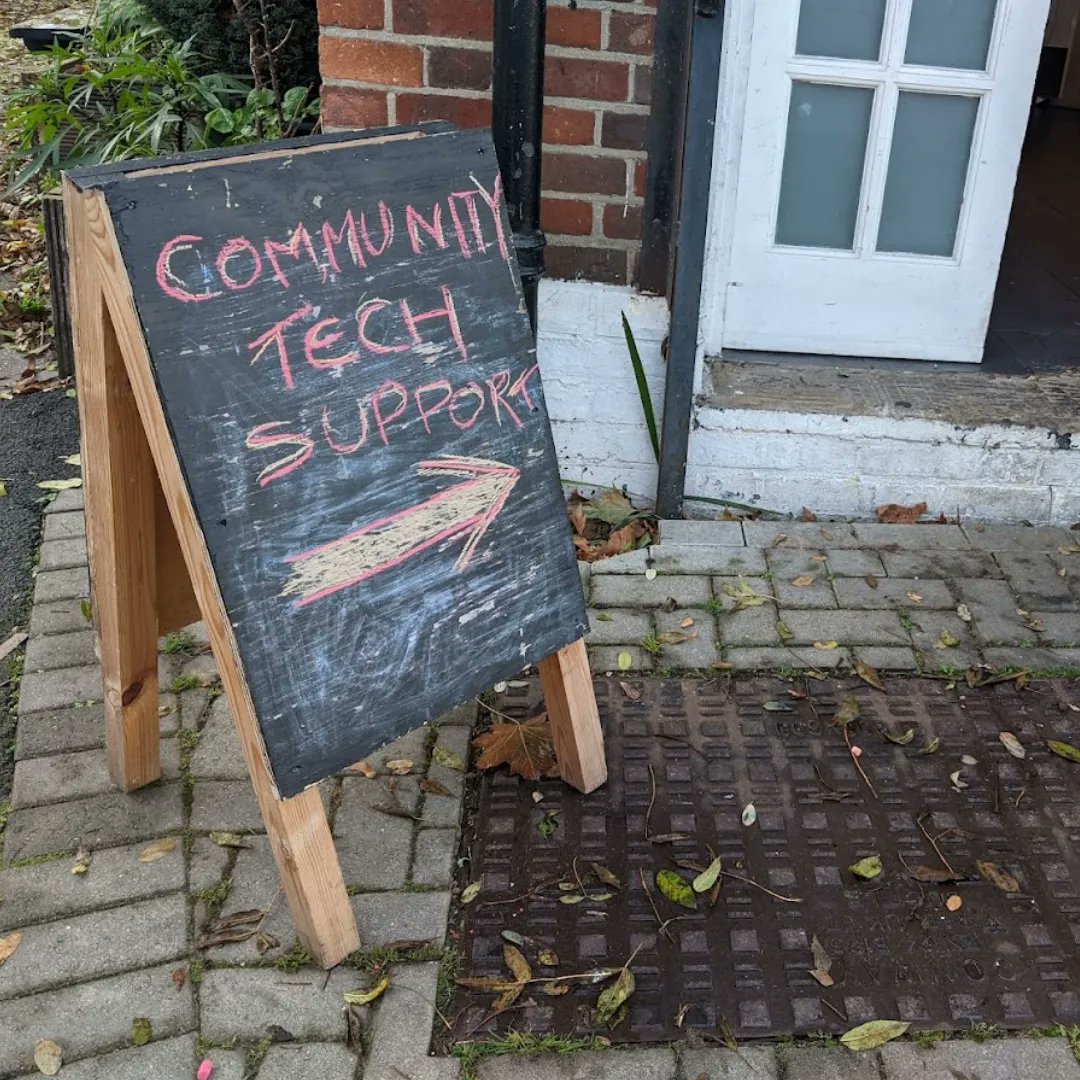 COMMUNITY
TECH
SUPPORT